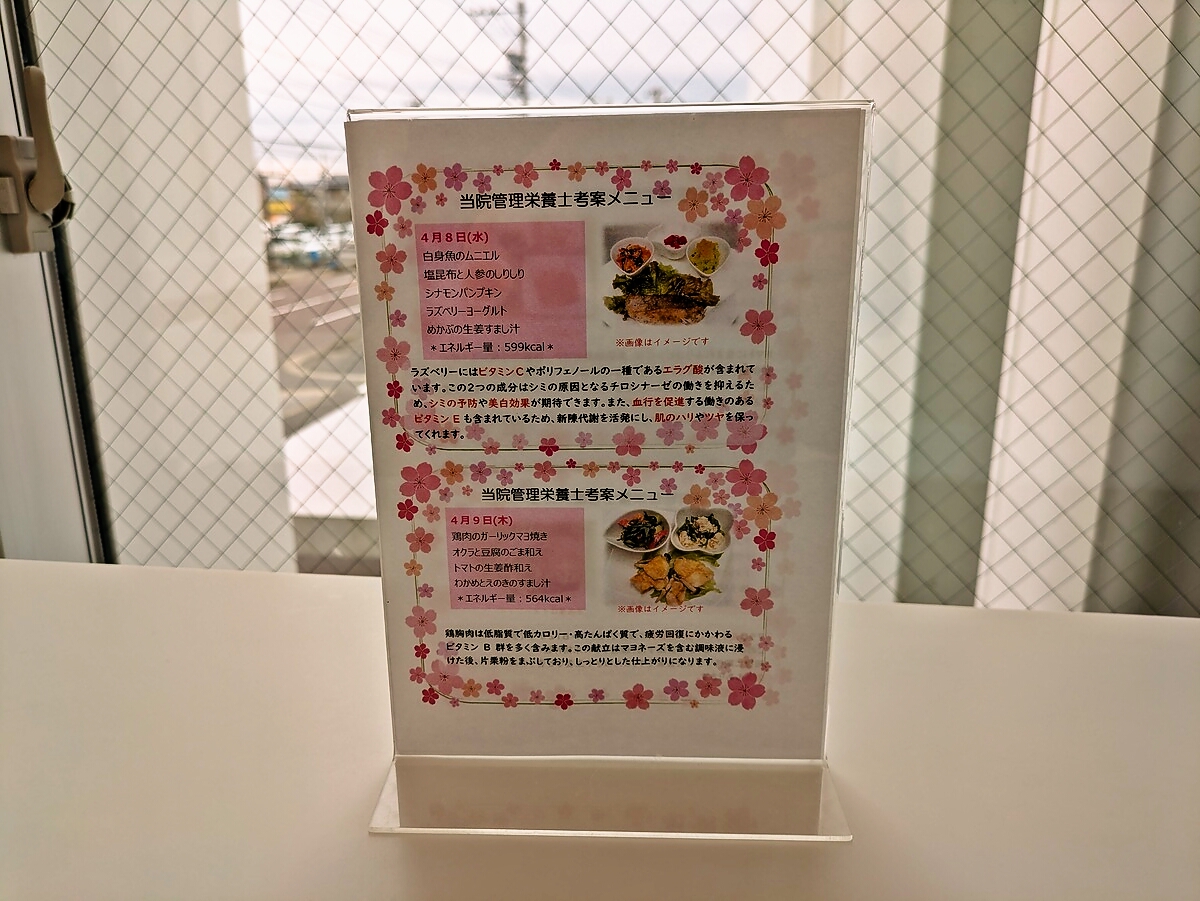 当院管理栄養士考案メニュー
４月８日(水)
白身魚のムニエル
塩昆布と人参のしりしり
シナモンパンプキン
ラズベリーヨーグルト
めかぶの生姜すまし汁
＊エネルギー量：599kcal＊
※画像はイメージです
ラズベリーにはビタミンCやポリフェノールの一種であるエラグ酸が含まれて
います。この2つの成分はシミの原因となるチロシナーゼの働きを抑えるた
め、シミの予防や美白効果が期待できます。また、血行を促進する働きのある
ビタミン E も含まれているため、新陳代謝を活発にし、肌のハリやツヤを保っ
てくれます。
当院管理栄養士考案メニュー
４月９日(木)
鶏肉のガーリックマヨ焼き
オクラと豆腐のごま和え
トマトの生姜酢和え
わかめとえのきのすまし汁
＊エネルギー量：564kcal＊
※画像はイメージです
鶏胸肉は低脂質で低カロリー・高たんぱく質で、疲労回復にかかわる
ビタミン B 群を多く含みます。この献立はマヨネーズを含む調味液に浸
けた後、片栗粉をまぶしており、しっとりとした仕上がりになります。